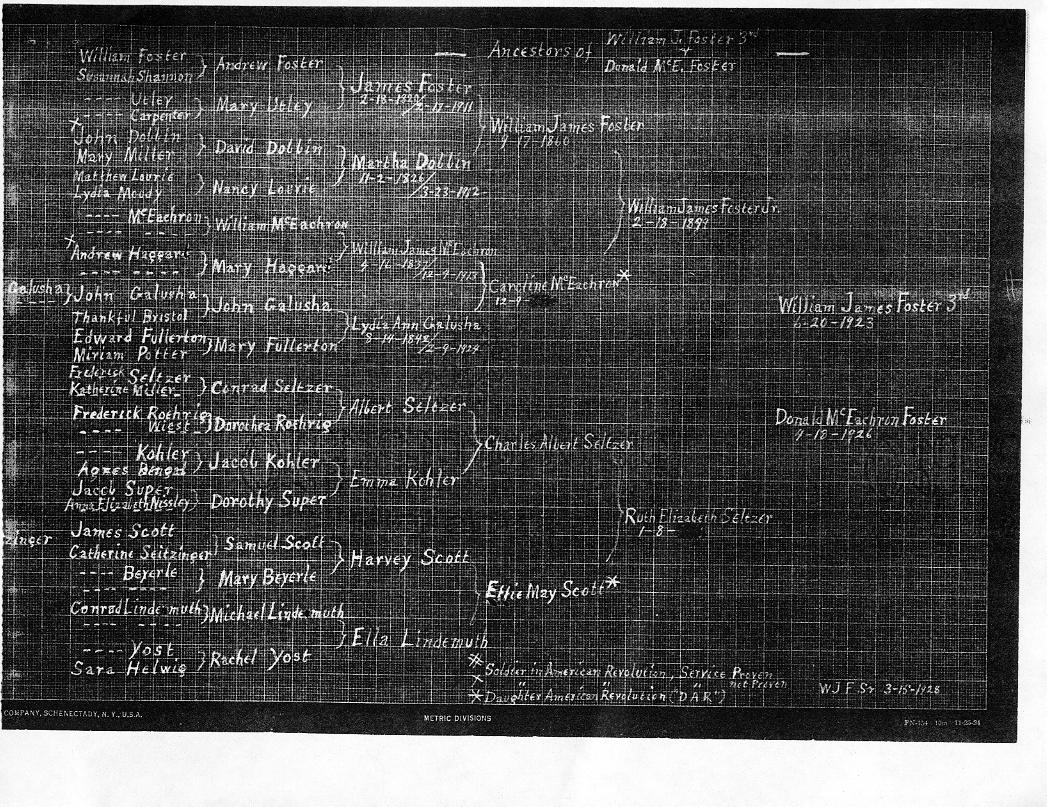 Ancestors of
William J. Foster 3rd
+
Donald McE. Foster
William Foster
Susannah Shannon
Andrew Foster
---- Utley
Carpenter
Mary Utley
James Foster
John Dobbin
Mary Miller
David Dobbin
Matthew Lourie
Lydia Moody
Nancy Lourie
Martha Dobbin
11-2-1826/
3-23-1912
William James Foster
9-17-1860
---- McEachron
---- ----
William McEachron
Andrew Haggart
---- ----
Mary Haggart
William James McEachron
12-9-1913
Galusha
John Galusha
Thankful Bristol
John Galusha
Edward Fullerton
Miriam Potter
Mary Fullerton
Lydia Ann Galusha
Caroline McEachron*
12-9-
William James Foster Jr.
2-18-1899
Frederick Seltzer
Katherine Miller
Conrad Seltzer
Frederick Roehrig
---- Wiest
Dorothea Roehrig
Albert Seltzer
---- Kohler
Agnes Bengal
Jacob Kohler
Jacob Super
Anna Elizabeth Nissley
Dorothy Super
Emma Kohler
Charles Albert Seltzer
zinger
James Scott
Catherine Seitzinger
Samuel Scott
---- Beyerle
---- ----
Mary Beyerle
Harvey Scott
Conrad Lindemuth
---- ----
Michael Lindemuth
---- Yost
Sara Helwig
Rachel Yost
Ella Lindemuth
Effie May Scott*
Ruth Elizabeth Seltzer
1-8-
William James Foster 3rd
6-20-1923
Donald McEachron Foster
9-18-1926
Soldier in American Revolution, Service Proven
" " " not Proven
* Daughter American Revolution ("D A R")
W J F Sr 3-15-1928
COMPANY, SCHENECTADY, N. Y., U.S.A.
METRIC DIVISIONS